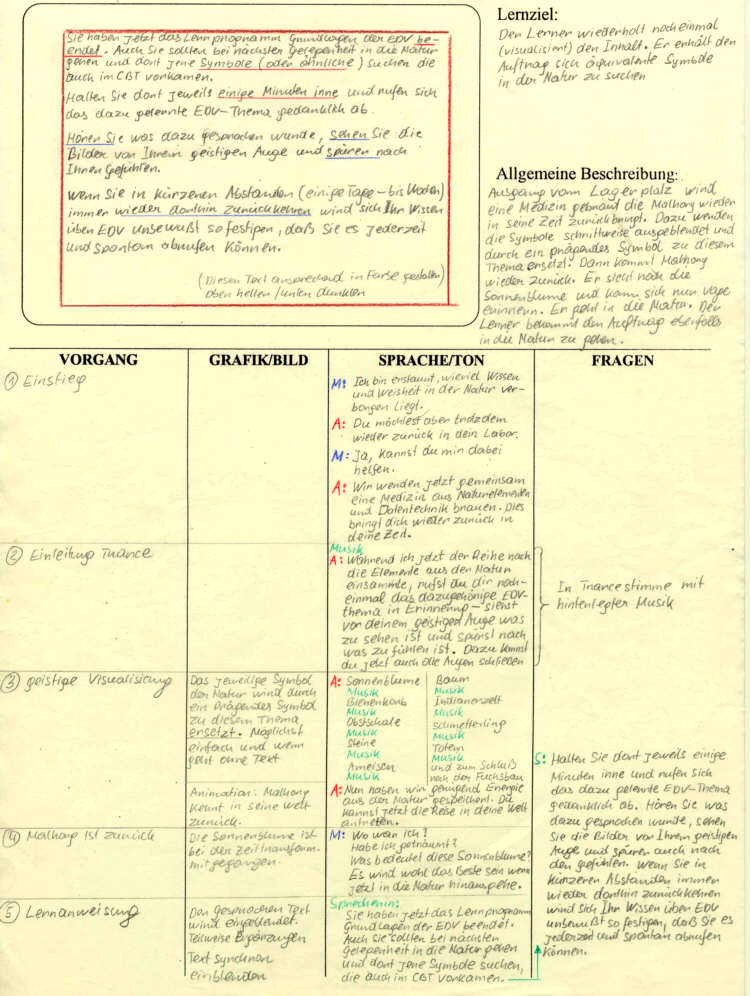 Sie haben jetzt das Lernprogramm Grundlagen der EDV be-
endet. Auch Sie sollten bei nächsten Gelegenheit in die Natur
gehen und dort jene Symbole (oder ähnliche) suchen die
auch im CBT vorkamen.
Halten Sie dort jeweils einige Minuten inne und rufen sich
das dazu gelernte EDV-Thema gedanklich ab.
Hören Sie was dazu gesprochen wurde, sehen Sie die
Bilder von Ihrem geistigen Auge und spüren nach
Ihnen Gefühlen.
Wenn Sie in kürzeren Abständen (einige Tage - bis Wochen)
immer wieder dorthin zurückkehren wird sich Ihr Wissen
über EDV unbewußt so festigen, daß Sie es jederzeit
und spontan abrufen können.
(Diesen Text ansprechend in Farbe gestalten)
oben hellen/unten dunklen
Lernziel:
Der Lerner wiederholt noch einmal
(visualisiert) den Inhalt. Er erhält den
Auftrag sich äquivalente Symbole
in der Natur zu suchen
Allgemeine Beschreibung:
Ausgang vom Lagerplatz wird
eine Medizin gebraut die Malhony wieder
in seine Zeit zurückbringt. Dazu werden
die Symbole schrittweise ausgeblendet und
durch ein prägendes Symbol zu diesem
Thema ersetzt. Dann kommt Malhony
wieder zurück. Er sieht noch die
Sonnenblume und kann sich nun vage
erinnern. Er geht in die Natur. Der
Lerner bekommt den Auftrag ebenfalls
in die Natur zu gehen.
VORGANG
GRAFIK/BILD
SPRACHE/TON
FRAGEN
① Einstieg
M: Ich bin erstaunt, wieviel Wissen
und Weisheit in der Natur ver-
borgen liegt.
A: Du möchtest aber trotzdem
wieder zurück in dein Labor.
M: Ja, kannst du mir dabei
helfen.
A: Wir werden jetzt gemeinsam
eine Medizin aus Naturelementen
und Datentechnik brauen. Dies
bringt dich wieder zurück in
deine Zeit.
② Einleitung Trance
Musik
A: Während ich jetzt der Reihe nach
die Elemente aus der Natur
einsammle, rufst du dir noch-
einmal das dazugehörige EDV-
thema in Erinnerung - siehst
vor deinem geistigen Auge was
zu sehen ist und spürst nach
was zu fühlen ist. Dazu kannst
du jetzt auch die Augen schließen
In Trancestimme mit
hinterlegter Musik
③ geistige Visualisierung
Das jeweilige Symbol
der Natur wird durch
ein Prägendes Symbol
zu diesem Thema
ersetzt. Möglichst
einfach und wenn
geht ohne Text
A: Sonnenblume
Musik
Bienenkorb
Musik
Obstschale
Musik
Steine
Musik
Ameisen
Musik
Baum
Musik
Indianerzelt
Musik
Schmetterling
Musik
Totem
Musik
und zum Schluß
noch der Fuchsbau
Animation: Malhony
kehrt in seine Welt
zurück.
A: Nun haben wir genügend Energie
aus der Natur gespeichert. Du
kannst jetzt die Reise in deine Welt
antreten.
④ Malhony ist zurück
Die Sonnenblume ist
bei der Zeittransform.
mitgegangen.
M: Wo war ich?
Habe ich geträumt?
Was bedeutet diese Sonnenblume?
Es wird wohl das Beste sein wenn
jetzt in die Natur hinausgehe.
⑤ Lernanweisung
Der gesprochene Text
wird eingeblendet.
Teilweise Ergänzungen
Text synchron
einblenden
Sprecherin:
Sie haben jetzt das Lernprogramm
Grundlagen der EDV beendet.
Auch Sie sollten bei nächsten
Gelegenheit in die Natur gehen
und dort jene Symbole suchen,
die auch im CBT vorkamen.
S: Halten Sie dort jeweils einige
Minuten inne und rufen sich
das dazu gelernte EDV-Thema
gedanklich ab. Hören Sie was
dazu gesprochen wurde, sehen
Sie die Bilder von Ihrem geistigen
Auge und spüren auch nach
den gefühlen. Wenn Sie in
kürzeren Abständen immer
wieder dorthin zurückkehren
wird sich Ihr Wissen über EDV
unbewußt so festigen, daß Sie es
jederzeit und spontan abrufen
können.